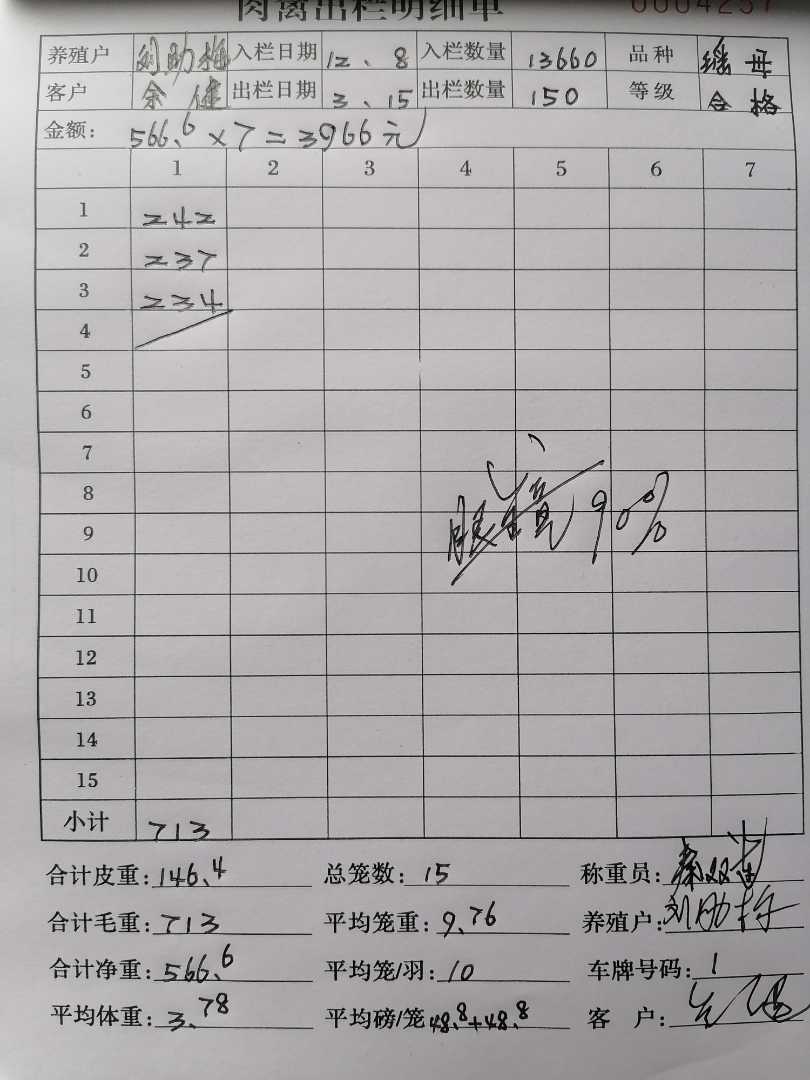 肉禽出栏明细单 0004257
养殖户 刘助梅 入栏日期 12、8 入栏数量 13660 品种 瑶母
客户 余健 出栏日期 3、15 出栏数量 150 等级 合格
金额: 566.6×7=3966元
1 2 3 4 5 6 7
1 242
2 237
3 234
4
5
6
7
8
9 90%
10
11
12
13
14
15
小计 713
合计皮重: 146.4 总笼数: 15 称重员:
合计毛重: 713 平均笼重: 9.76 养殖户:
合计净重: 566.6 平均笼/羽: 10 车牌号码: 1
平均体重: 3.78 平均磅/笼 48.8+48.8 客 户: